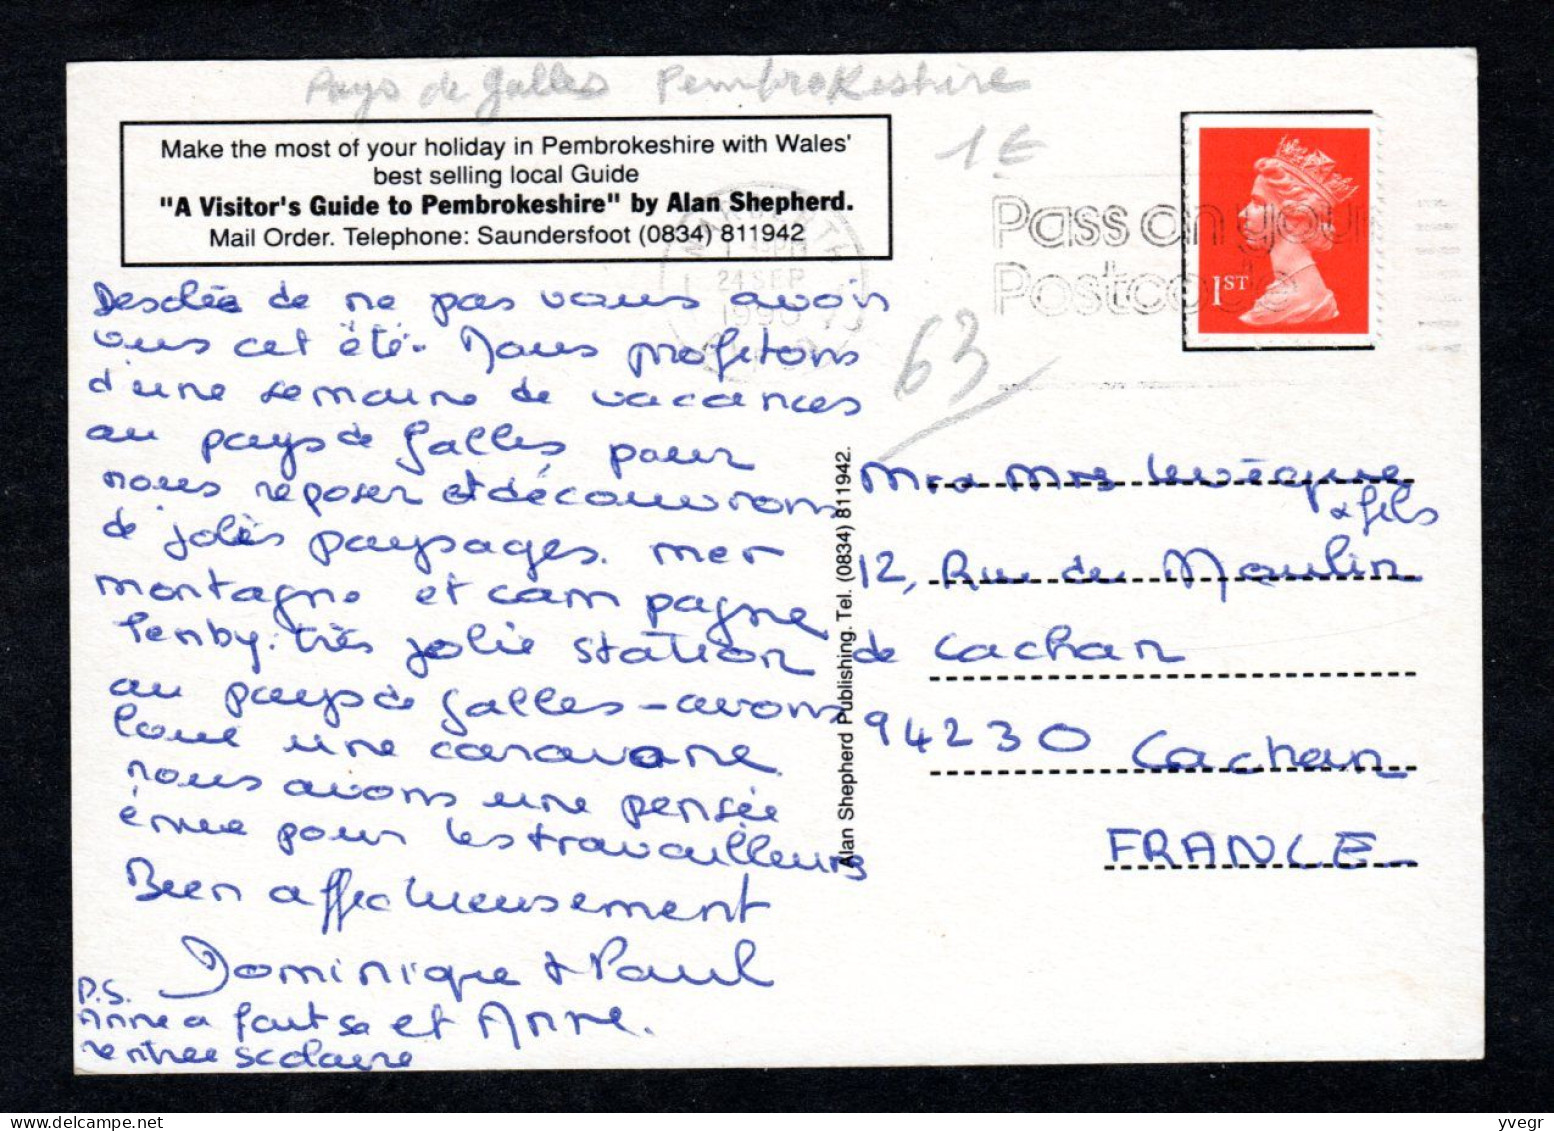 Pays de Galles Pembrokeshire
1 €
Make the most of your holiday in Pembrokeshire with Wales'
best selling local Guide
"A Visitor's Guide to Pembrokeshire" by Alan Shepherd.
Mail Order. Telephone: Saundersfoot (0834) 811942
24 SEP
Pass on your
Postcode
1ST
63
Desolée de ne pas vous avoir
vus cet été. Nous profitons
d'une semaine de vacances
au pays de Galles pour
nous reposer et découvrons
de jolis paysages. mer
montagne et campagne
Tenby. très jolie station
au pays de Galles - avons
loué une caravane.
nous avons une pensée
émue pour les travailleurs
Bien affectueusement
Dominique & Paul
et Anne.
P.S.
Anne a fait sa
rentrée scolaire
Alan Shepherd Publishing. Tel. (0834) 811942.
Mr & Mrs Levèque
& fils
12, Rue du Moulin
de Cachan
94230 Cachan
FRANCE
yvegr